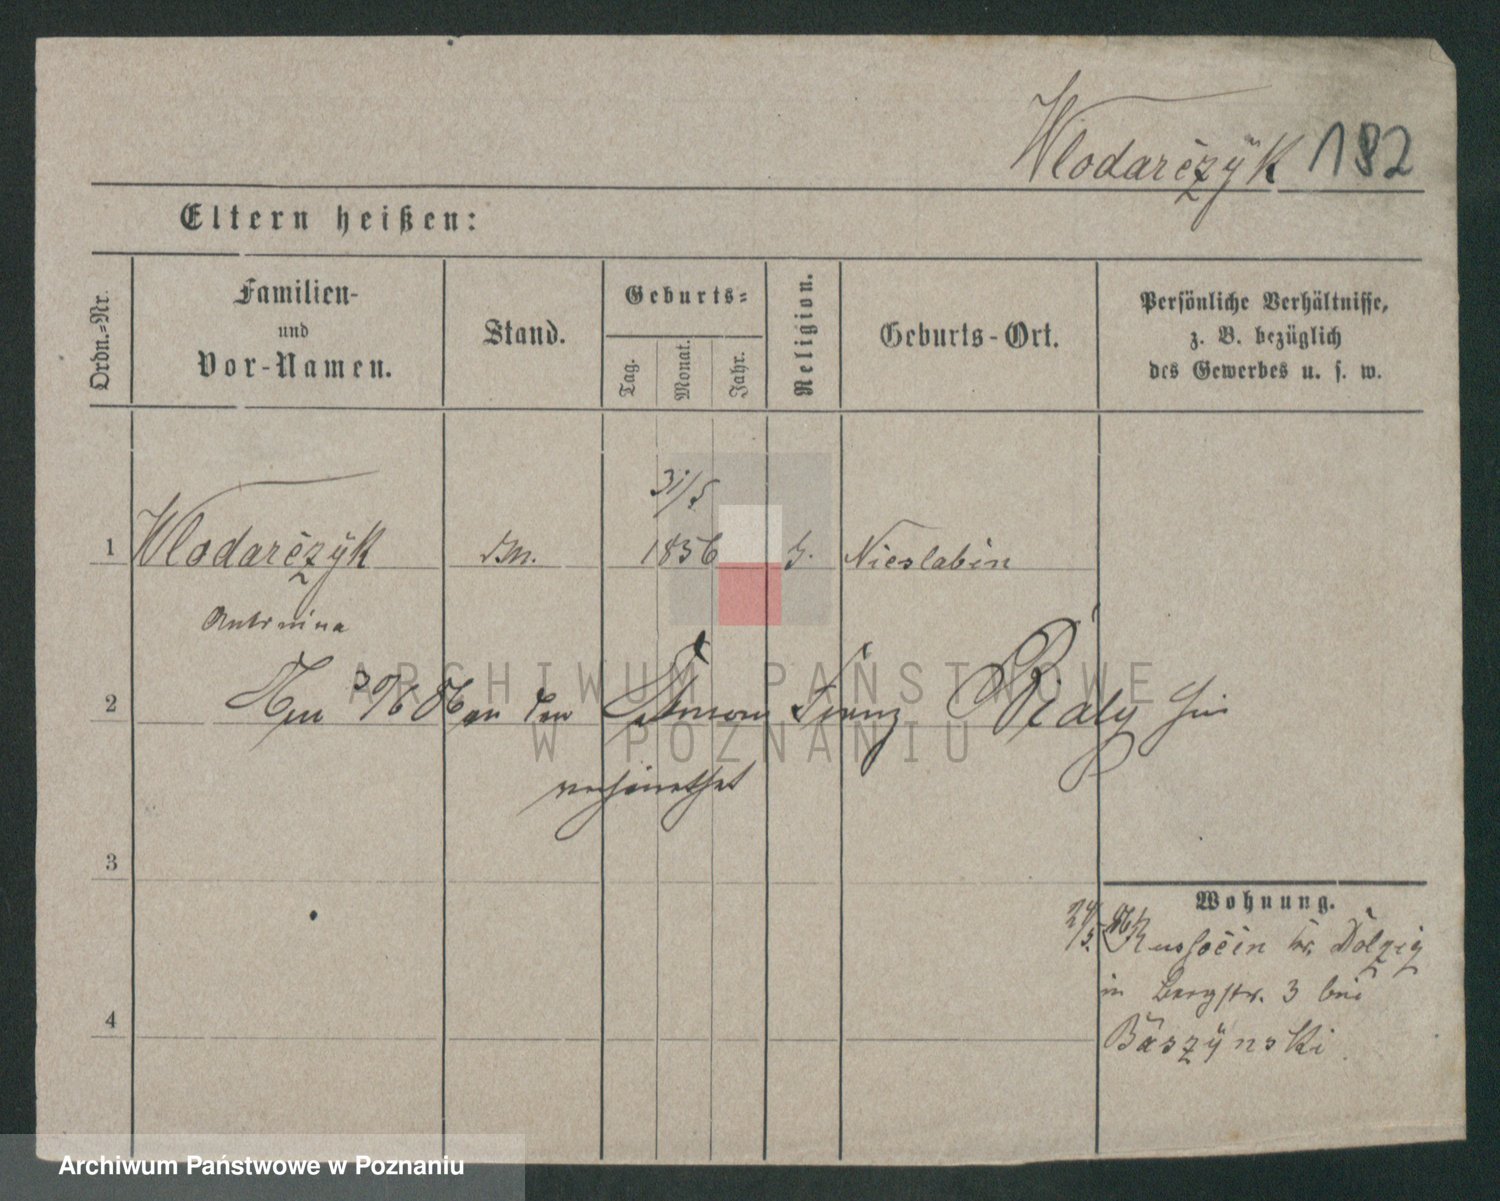 Wlodarczyk 182
Eltern heißen:
Ordn.-Nr.
Familien-
und
Vor-Namen.
Stand.
Geburts-
Tag.
Monat.
Jahr.
Religion.
Geburts-Ort.
Persönliche Verhältnisse,
z. B. bezüglich
des Gewerbes u. s. w.
31/5
1 Wlodarczyk 1856 Nieslabin
Antonina
2 30/6 86 an den Franz Bialy hier
verheirathet
3
Wohnung.
24/5. 86 Russocin Kr. Dolzig
in Bergstr. 3 bei
4
Baszynski
ARCHIWUM PAŃSTWOWE
W POZNANIU
Archiwum Państwowe w Poznaniu